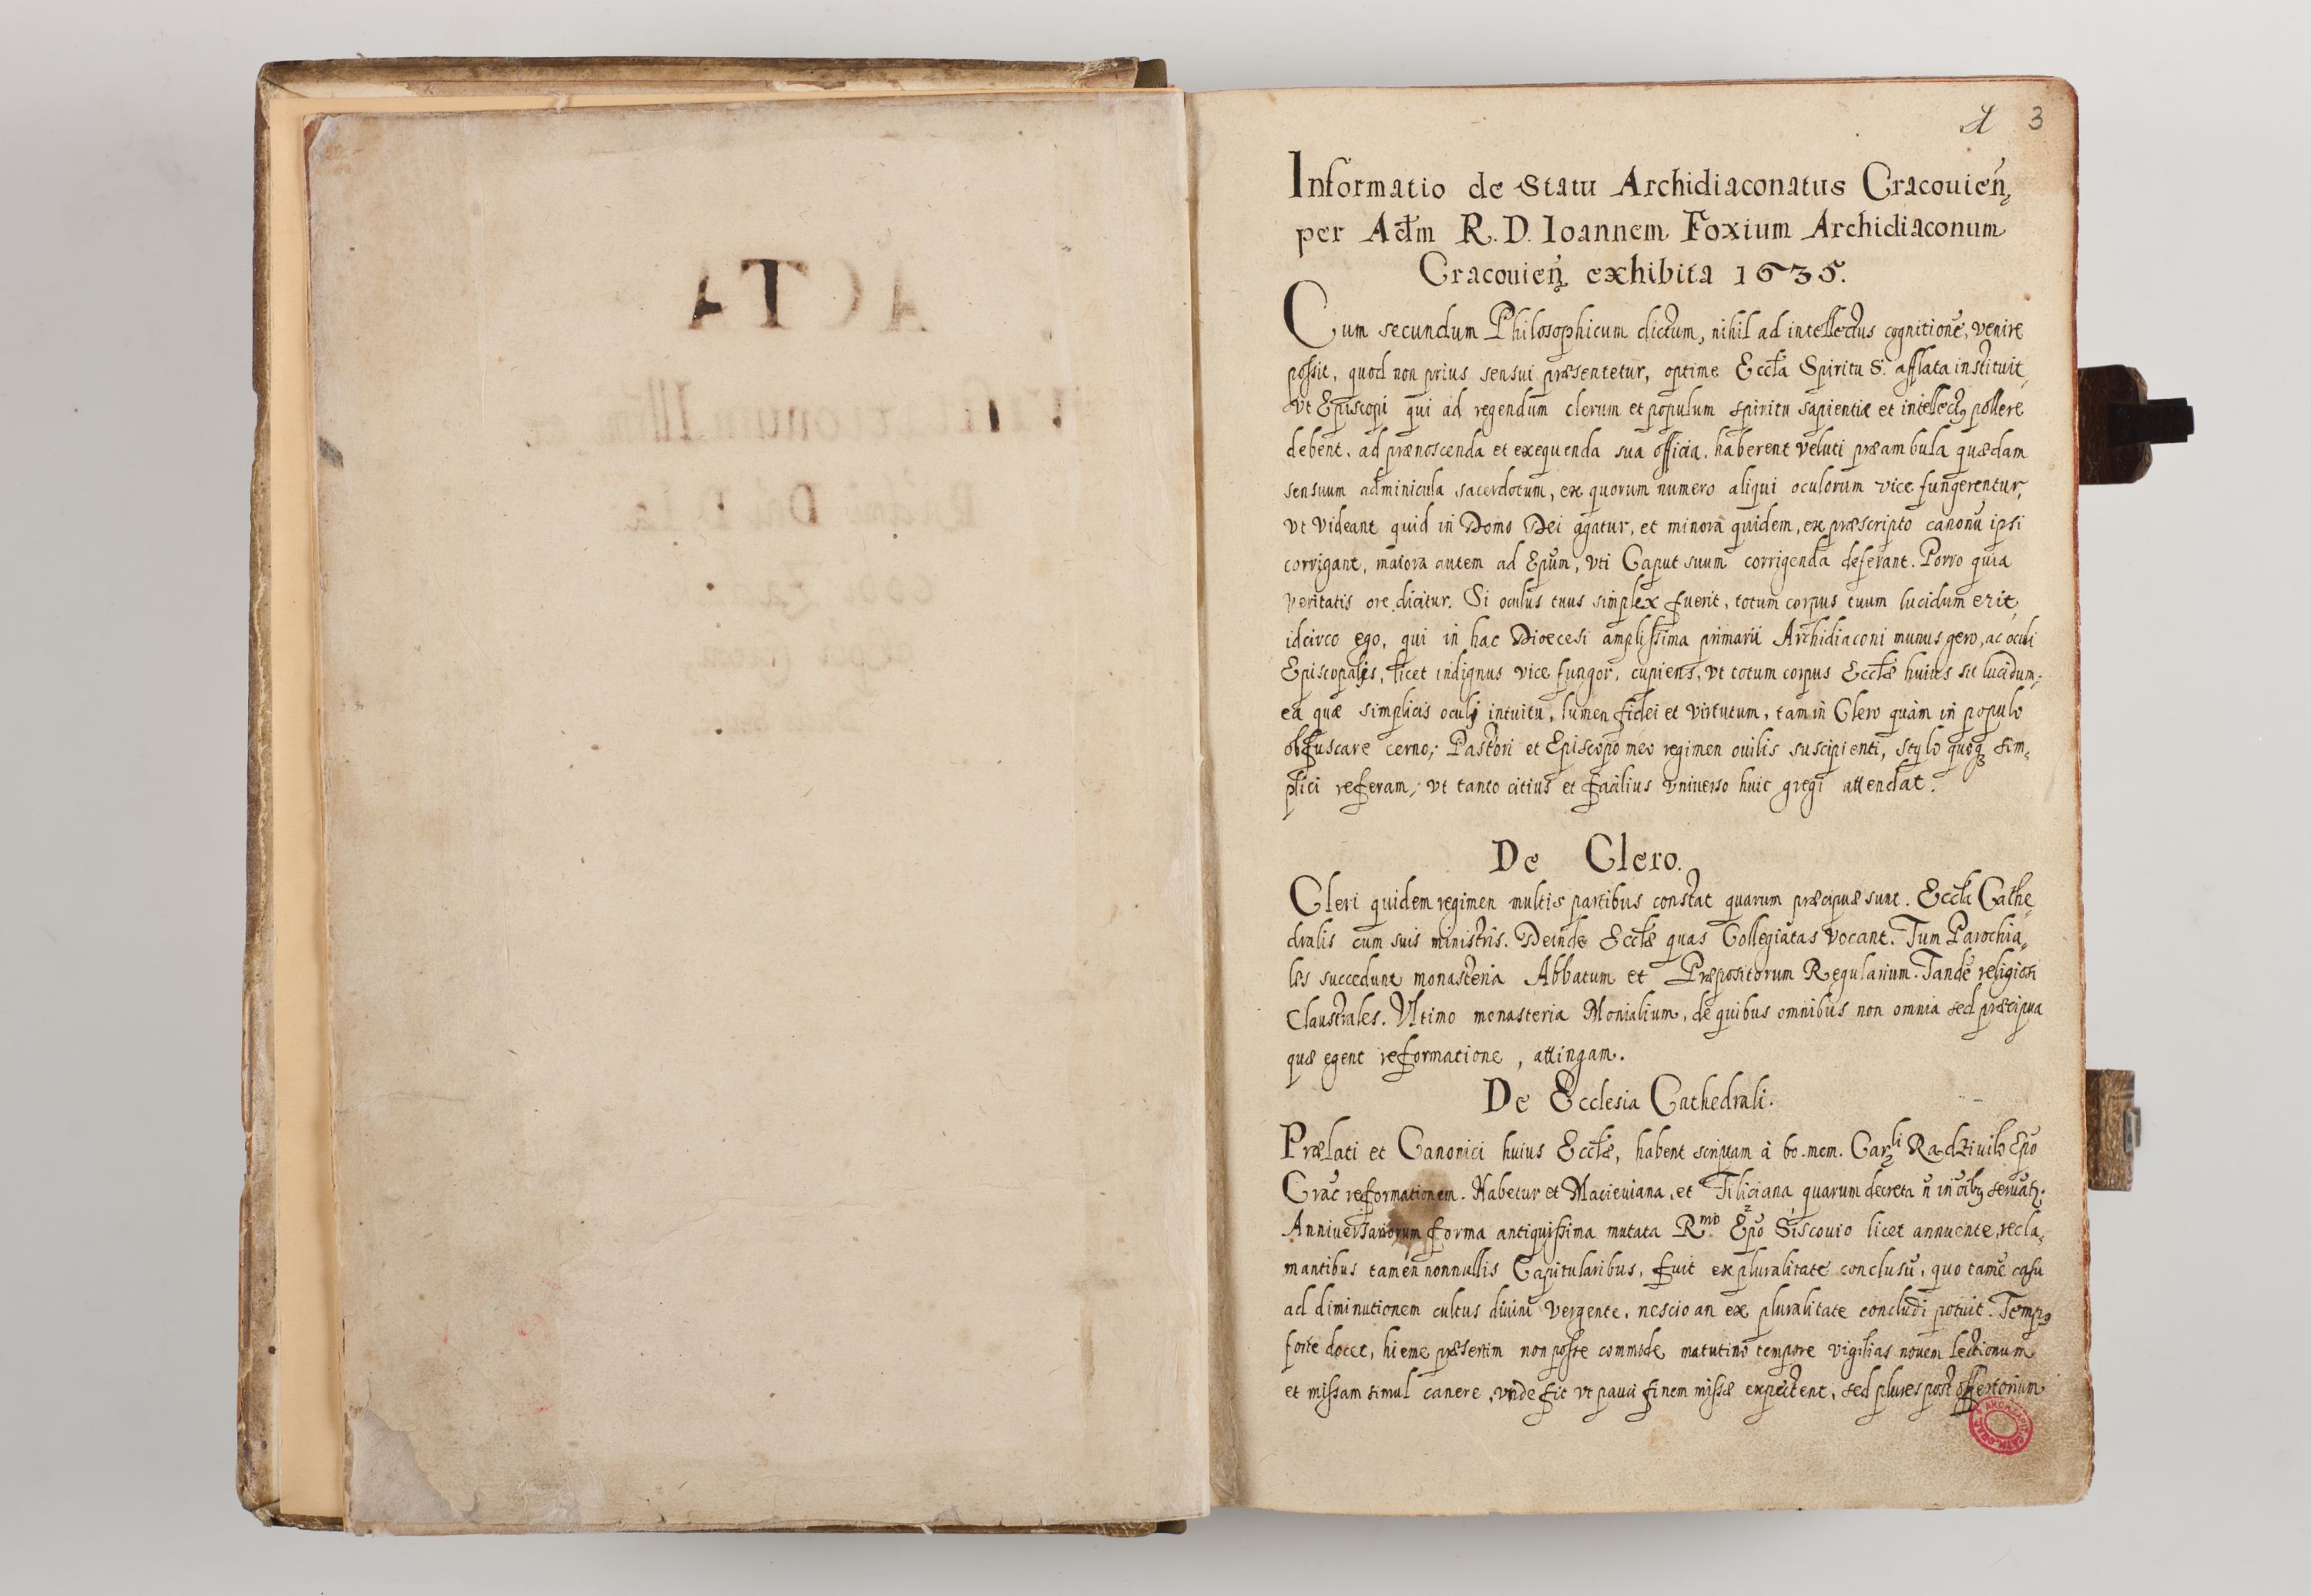 ACTA
3
Informatio de Statu Archidiaconatus Cracouien̄
per Adm R. D. Ioannem Foxium Archidiaconum
Cracouień exhibita 1635.
Cum secundum Philosophicum dictum, nihil ad intellectus cognitionē, venire
possit, quod non prius sensui præsentetur, optime Eccła Spiritu S. afflata instituit,
vt Episcopi qui ad regendum clerum et populum spiritu sapientiæ et intellectꝰ pollere
debent, ad prænoscenda et exequenda sua officia, haberent veluti præambula quædam
sensuum adminicula sacerdotum, ex quorum numero aliqui oculorum vice fungerentur,
vt videant quid in Domo Dei agatur, et minora quidem, ex præscripto canonū ipsi
corrigant, maiora autem ad Epūm, vti Caput suum corrigenda deferant. Porro quia
veritatis ore dicitur. Si oculus tuus simplex fuerit, totum corpus tuum lucidum erit,
idcirco ego, qui in hac Dioecesi amplissima primarii Archidiaconi munus gero, ac oculi
Episcopalis, licet indignus vice fungor, cupiens, vt totum corpus Ecclæ huius sit lucidum;
ea quæ simplicis oculj intuitu, lumen fidei et virtutum, tam in Clero quàm in populo
obfuscare cerno; Pastori et Episcopo meo regimen ouilis suscipienti, stylo quoqꝫ sim-
plici referam; vt tanto citius et facilius vniuerso huic gregi attendat.
De Clero.
Cleri quidem regimen multis partibus constat quarum præcipuæ sunt. Eccła Cathe-
dralis cum suis ministris. Deinde Ecclæ quas Collegiatas vocant. Tum Parochia-
les succedunt monasteria Abbatum et Præpositorum Regularium. Tandē religiosi
Claustrales. Vltimo monasteria Monialium, de quibus omnibus non omnia sed præcipua
quæ egent reformatione, attingam.
De Ecclesia Cathedrali.
Prælati et Canonici huius Ecclæ, habent scriptam à bo. mem. Radziuilo Epō
Crac̄ reformationem. Habetur et Macieuiana, et Filiciana quarum decreta n̄ in oībꝰ seruātꝫ.
Anniuersariorum forma antiquissima mutata Rmo. Epō Siscouio licet annuente, recla-
mantibus tamen nonnullis Capitularibus, fuit ex pluralitate conclusū, quo tamē casu
ad diminutionem cultus diuini vergente, nescio an ex pluralitate concludi potuit. Tempꝰ
forte docet, hieme præsertim non posse commode matutino tempore vigilias nouem lectionum
et missam simul canere, vnde fit vt pauci finem missæ expectent, sed plures post offertorium